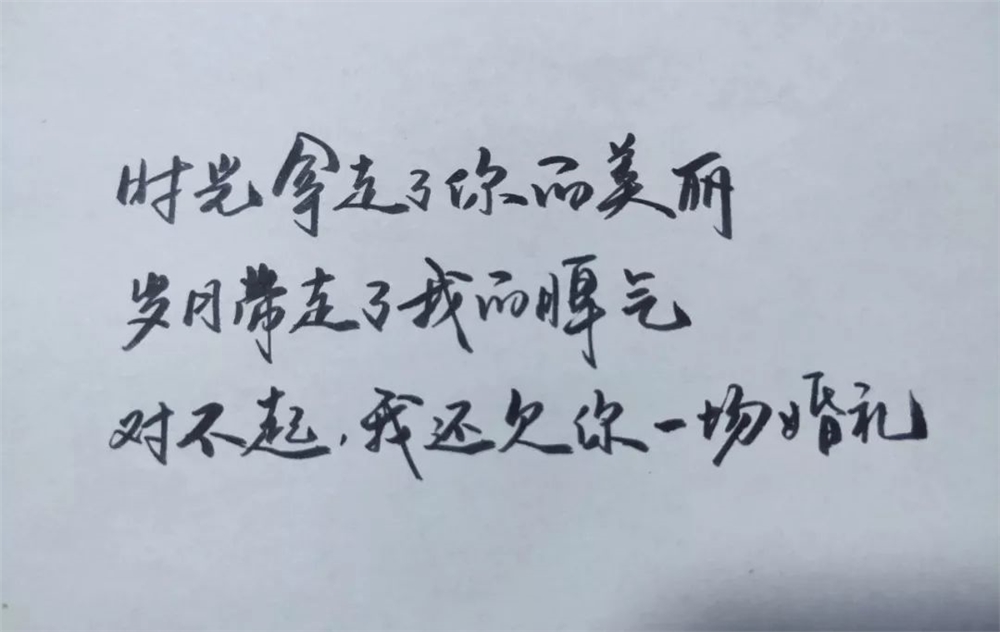 时光拿走了你的美丽
岁月带走了我的脾气
对不起,我还欠你一场婚礼